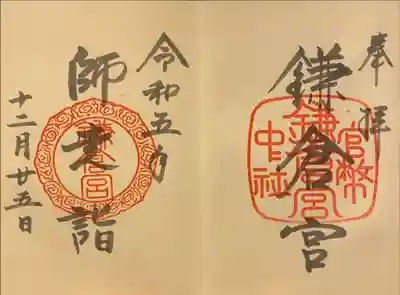 奉拝
鎌倉宮
官幣
鎌倉宮
中社
令和五年
師走詣
十二月廿五日